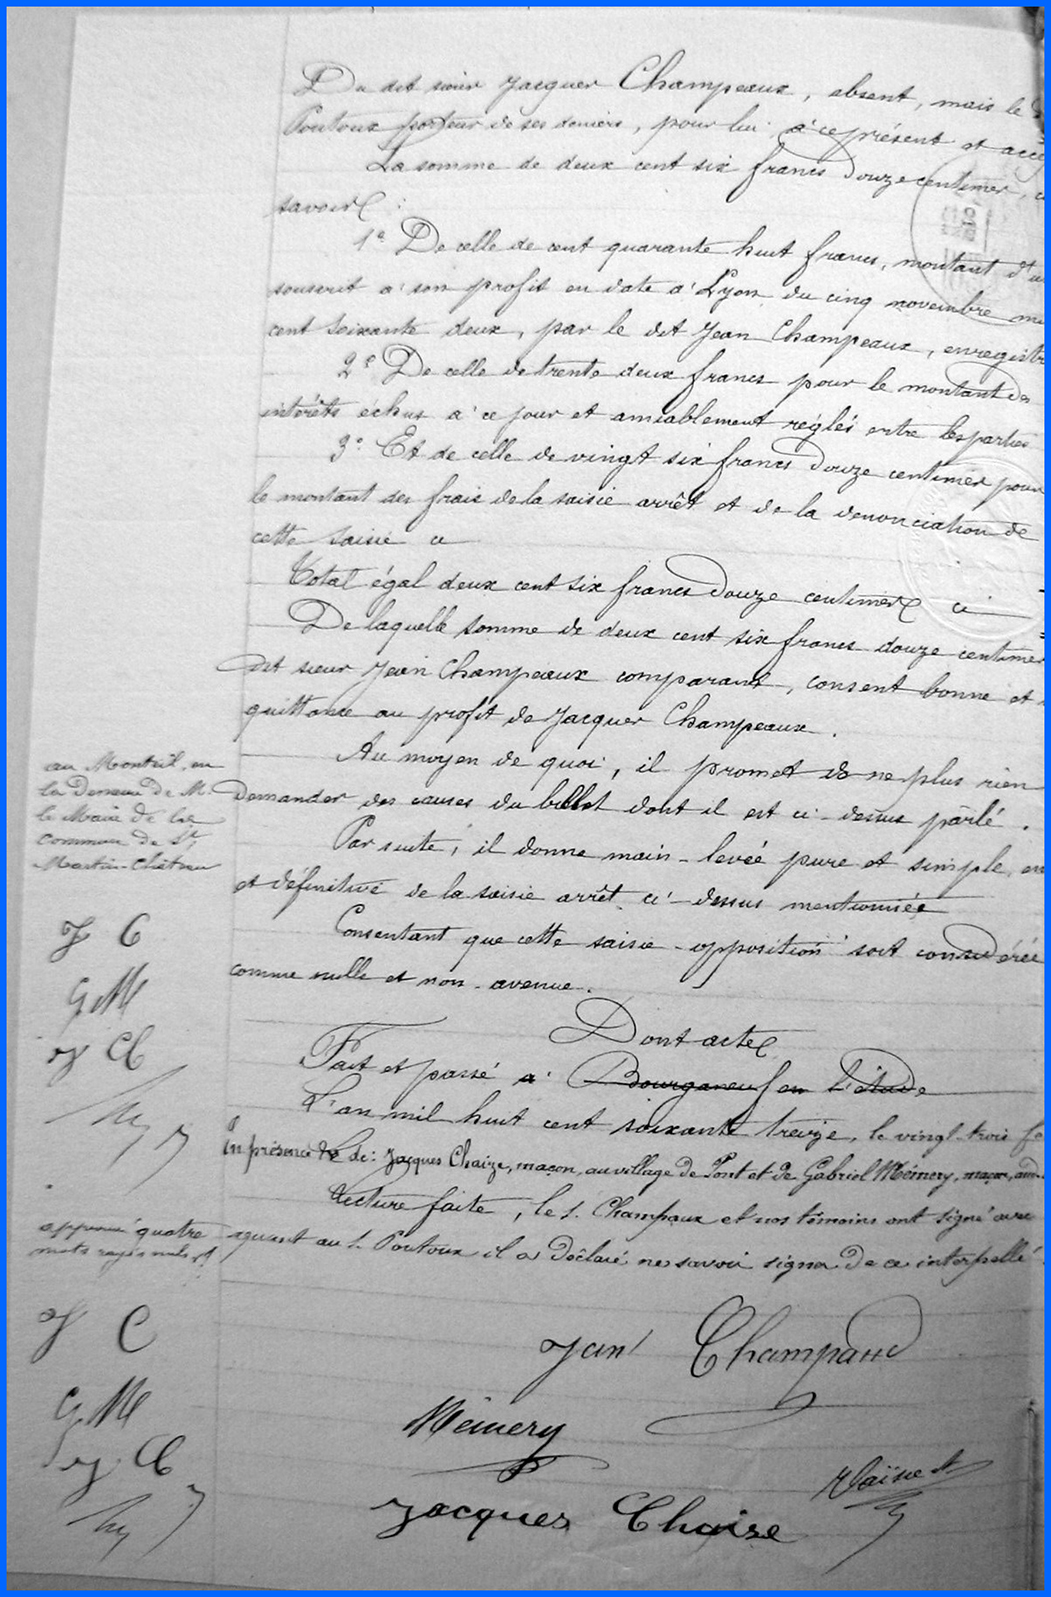 Du dit sieur Jacques Champeaux, absent, mais le
Poutoux porteur de ses deniers, pour lui à ce présent et
La somme de deux cent six francs douze centimes,
savoir :
1° De celle de cent quarante huit francs, montant d'u
souscrit à son profit en date à Lyon du cinq novembre
cent soixante deux, par le dit Jean Champeaux, enregistr
2° De celle de trente deux francs pour le montant des
intérêts échus à ce jour et amiablement réglés entre les parties
3° Et de celle de vingt six francs douze centimes pour
le montant des frais de la saisie arrêt et de la dénonciation de
cette saisie ci
Total égal deux cent six francs douze centimes ci
De laquelle somme de deux cent six francs douze centimes
dit sieur Jean Champeaux comparant, consent bonne et
quittance au profit de Jacques Champeaux.
Au moyen de quoi, il promet de ne plus rien
demander des causes du billet dont il est ci-dessus parlé.
Par suite, il donne main-levée pure et simple, en
et définitive de la saisie arrêt ci-dessus mentionnée
Consentant que cette saisie-opposition soit considérée
comme nulle et non-avenue.
Dont acte
Fait et passé à Bourganeuf en l'étude
L'an mil huit cent soixante treize, le vingt-trois
En présence de : Jacques Chaize, maçon, au village de Pont et de Gabriel Mémery, maçon,
Lecture faite, le s. Champaux et nos témoins ont signé avec
quant au s. Poutoux il a déclaré ne savoir signer de ce interpellé
au Monteil, en
la demeure de M.
le Maire de la
commune de St
Martin-Château
J C
G M
J Ch
approuvé quatre
mots rayés nuls
J C
G M
J. Ch
Jean Champaud
Mémery
Jacques Chaise